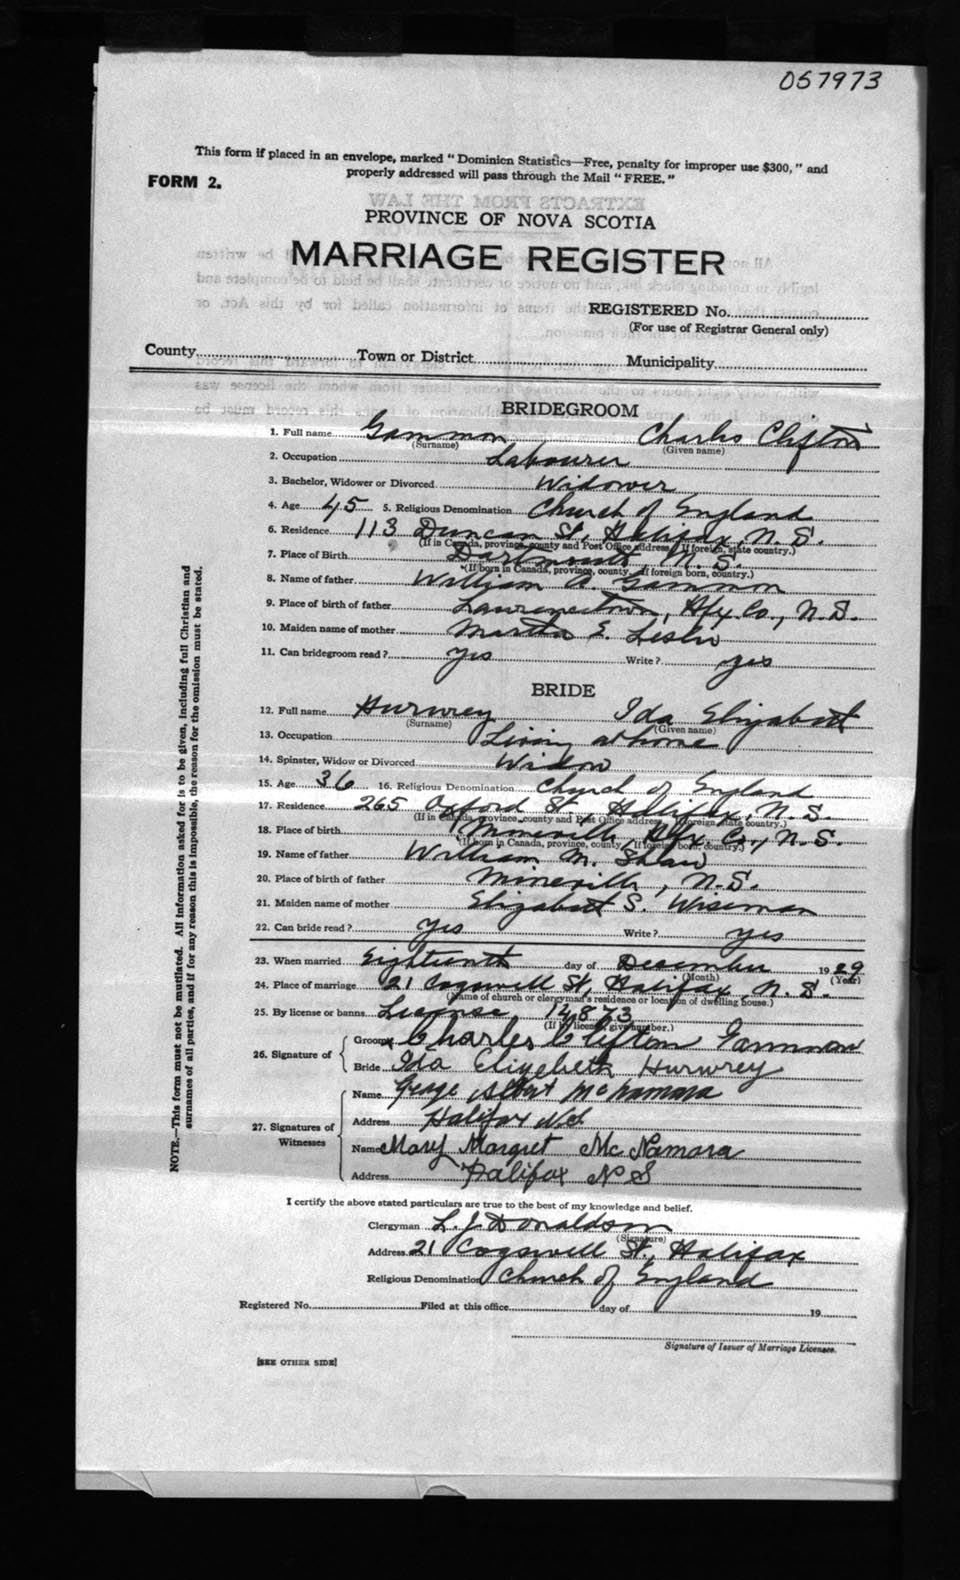 057973
This form if placed in an envelope, marked "Dominion Statistics—Free, penalty for improper use $300," and
properly addressed will pass through the Mail "FREE."
FORM 2.
PROVINCE OF NOVA SCOTIA
MARRIAGE REGISTER
REGISTERED No.
(For use of Registrar General only)
County Town or District Municipality
BRIDEGROOM
1. Full name Gammon Charles Clifton
(Surname) (Given name)
2. Occupation Labourer
3. Bachelor, Widower or Divorced Widower
4. Age 45 5. Religious Denomination Church of England
6. Residence 113 Duncan St, Halifax, N. S.
(If in Canada, province, county and Post Office address. If foreign, state country.)
7. Place of Birth Dartmouth, N. S.
(If born in Canada, province, county. If foreign born, country.)
8. Name of father William A. Gammon
9. Place of birth of father Lawrencetown, Hfx. Co., N. S.
10. Maiden name of mother Martha E. Leslie
11. Can bridegroom read? yes Write? yes
BRIDE
12. Full name Hurwrey Ida Elizabeth
(Surname) (Given name)
13. Occupation Living at home
14. Spinster, Widow or Divorced Widow
15. Age 36 16. Religious Denomination Church of England
17. Residence 265 Oxford St, Halifax, N. S.
(If in Canada, province, county and Post Office address. If foreign state country.)
18. Place of birth Mineville, Hfx. Co., N. S.
(If born in Canada, province, county. If foreign born, country.)
19. Name of father William M. Shaw
20. Place of birth of father Mineville, N. S.
21. Maiden name of mother Elizabeth S. Wiseman
22. Can bride read? yes Write? yes
23. When married Eighteenth day of December 1929
(Month) (Year)
24. Place of marriage 21 Cogswell St, Halifax, N. S.
(Name of church or clergyman's residence or location of dwelling house.)
25. By license or banns License 14873
(If by license, give number.)
26. Signature of Groom Charles Clifton Gammon
Bride Ida Elizebeth Hurwrey
27. Signatures of Witnesses
Name George Albert McNamara
Address Halifax N.S.
Name Mary Margret McNamara
Address Halifax N S
I certify the above stated particulars are true to the best of my knowledge and belief.
Clergyman L. J. Donaldson
(Signature)
Address 21 Cogswell St., Halifax
Religious Denomination Church of England
Registered No. Filed at this office day of 19
Signature of Issuer of Marriage Licenses.
[SEE OTHER SIDE]
NOTE.—This form must not be mutilated. All information asked for is to be given, including full Christian and
surnames of all parties, and if for any reason this is impossible, the reason for the omission must be stated.